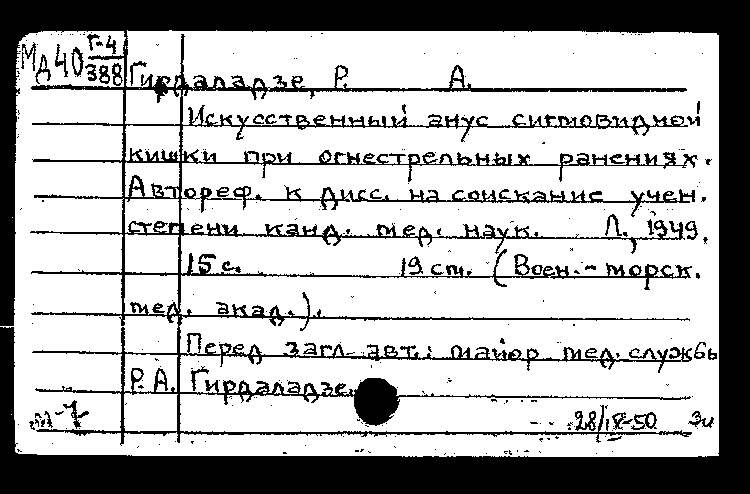 Мд40 Г-4/388
Гирдаладзе, Р. А.
Искусственный анус сигмовидной
кишки при огнестрельных ранениях.
Автореф. к дисс. на соискание учен.
степени канд. мед. наук. Л., 1949.
15 с. 19 см. (Воен.-морск.
мед. акад.).
Перед загл. авт.: майор мед. службы
Р. А. Гирдаладзе.
28/IX-50